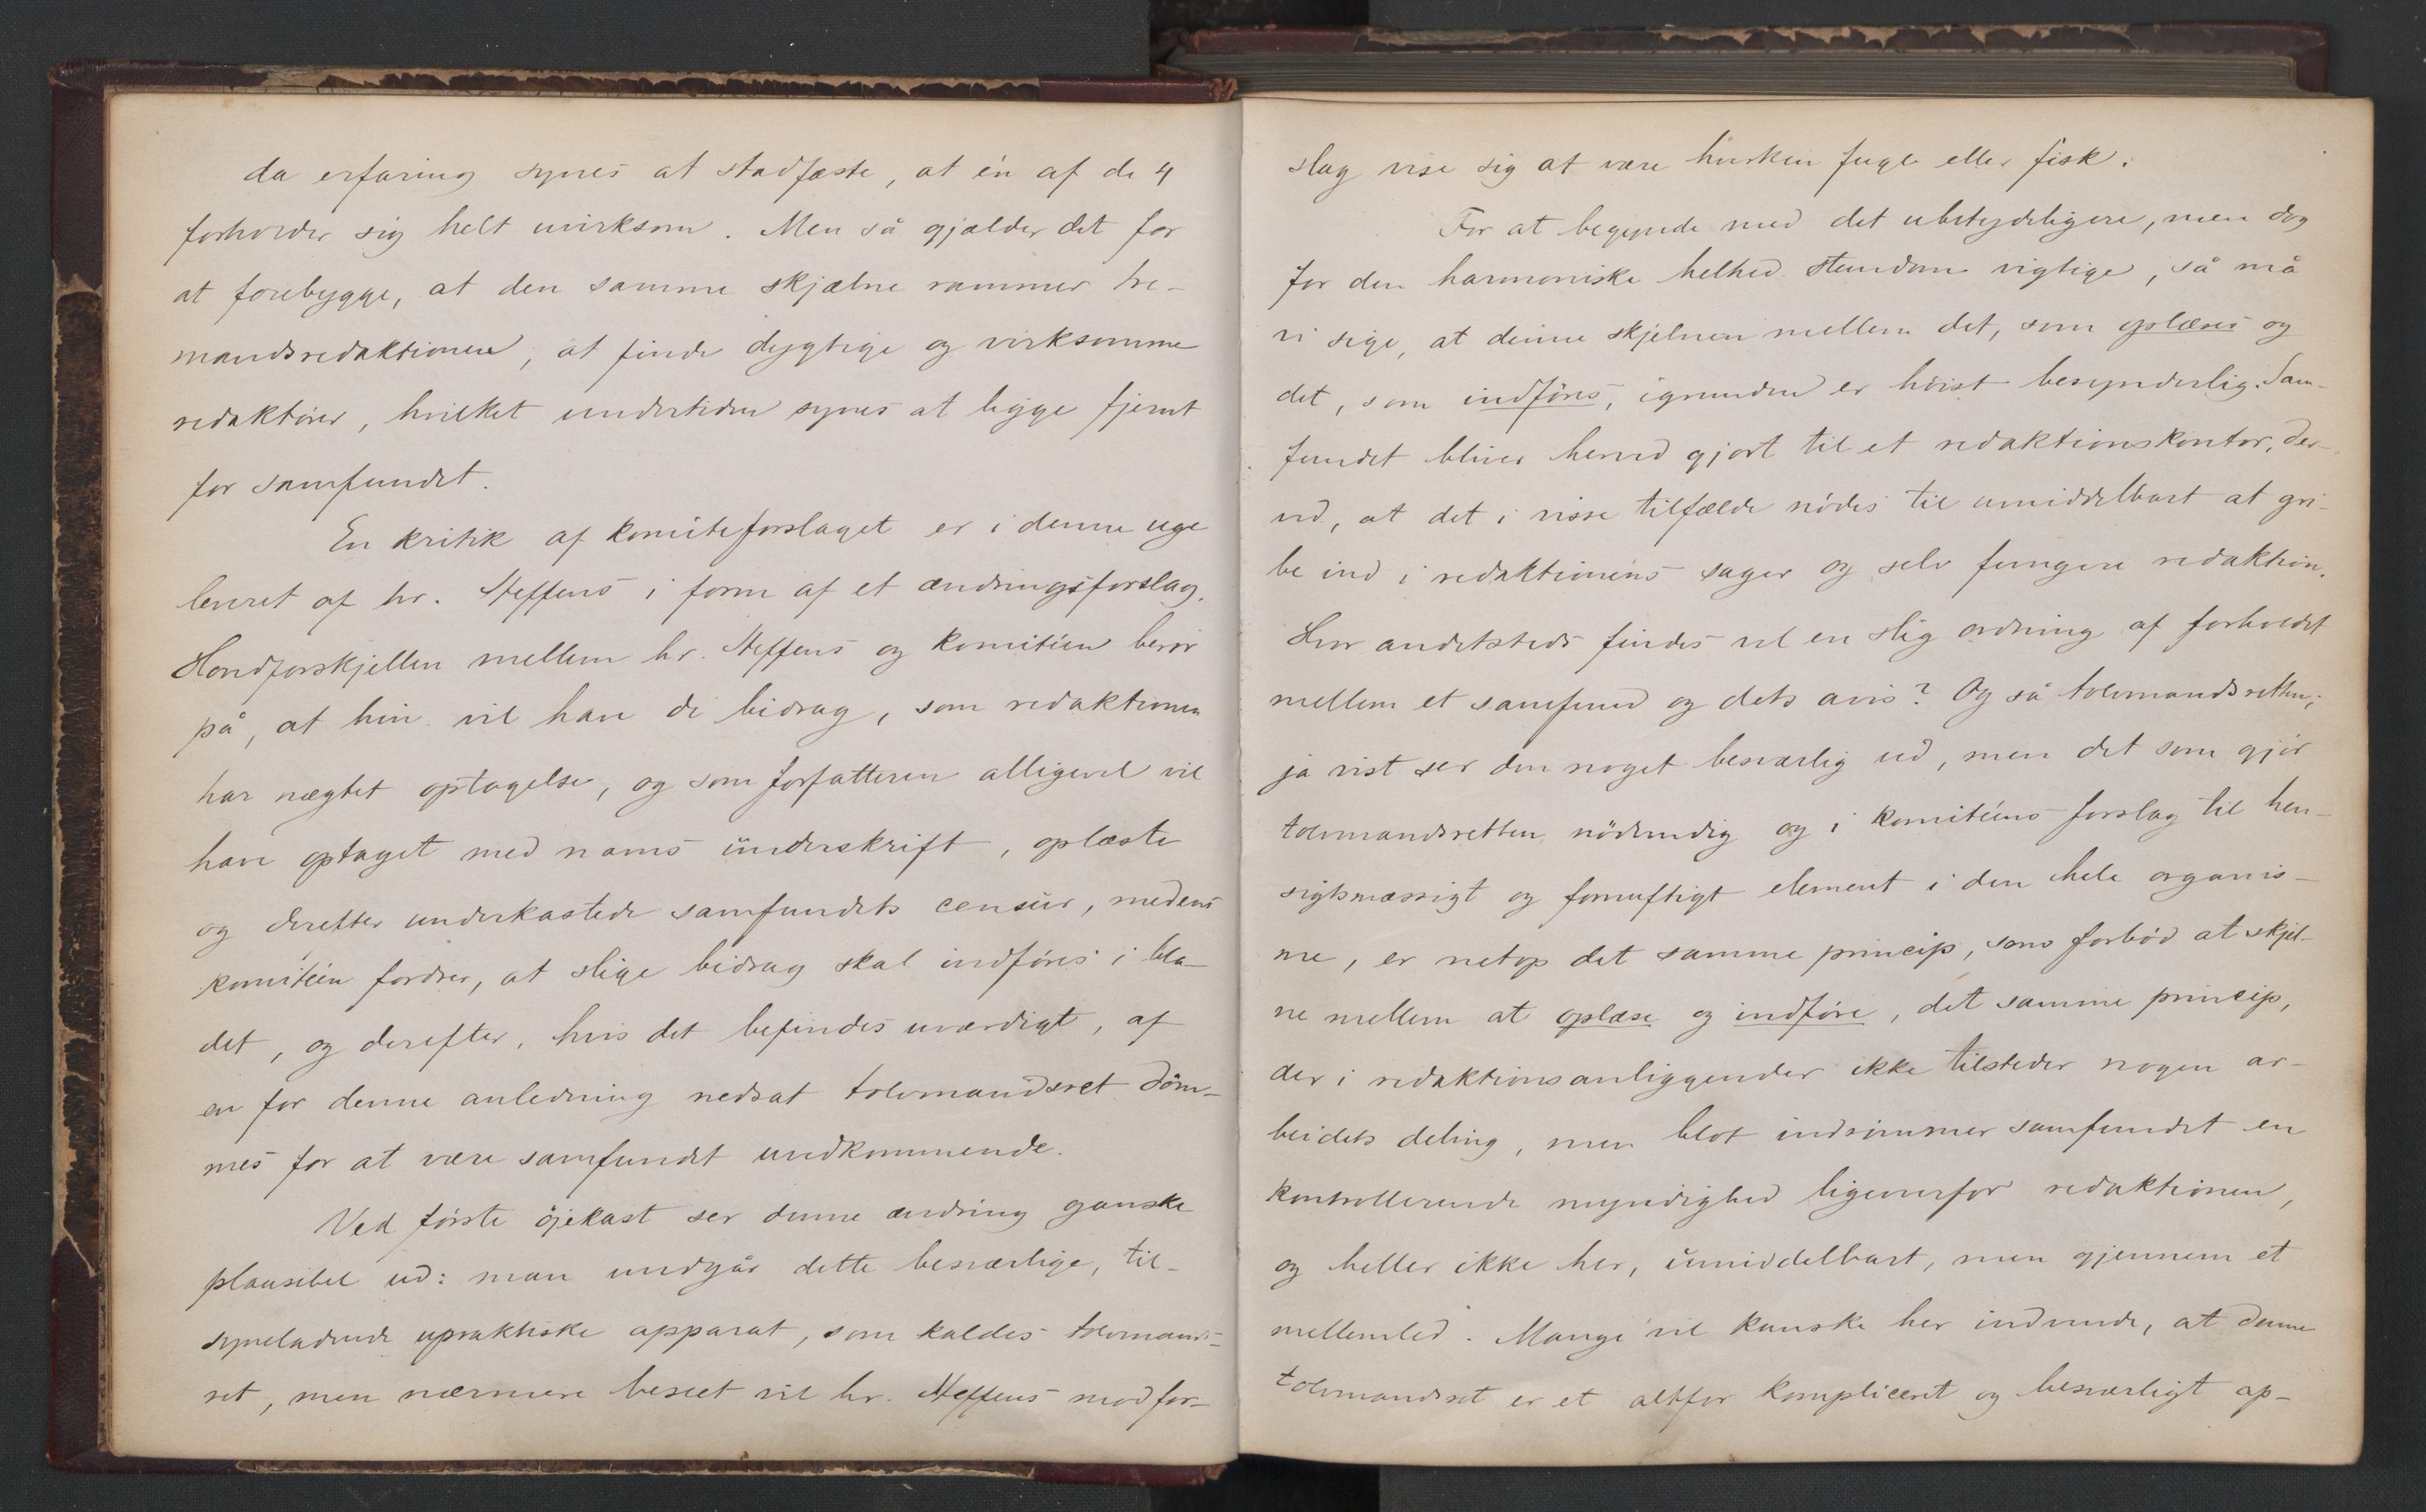 da erfaring synes at stadfæste, at én af de 4
forholder sig helt uvirksom. Men så gjælder det for
at forebygge, at den samme skjæbne rammer tre-
mandsredaktionen, at finde dygtige og virksomme
redaktører, hvilket undertiden synes at ligge fjernt
for samfundet.
En kritik af komiteforslaget er i denne uge
leveret af hr. Steffens i form af et ændringsforslag.
Hovedforskjellen mellem hr. Steffens og komitéen berør
på, at hin vil have de bidrag, som redaktionen
har nægtet optagelse, og som forfatteren alligevel vil
have optaget med navns underskrift, oplæste
og derefter underkastede samfundets censur, medens
komitéen fordrer, at slige bidrag skal indføres i bla-
det, og derefter, hvis det befindes uværdigt, af
en for denne anledning nedsat tolvmandsret döm-
mes for at være samfundet uvedkommende.
Ved første øjekast ser denne ændring ganske
plausibel ud: man undgår dette besværlige, til-
syneladende upraktiske apparat, som kaldes tolvmands-
ret, men nærmere beseet vil hr. Steffens modfor-
slag vise sig at være hverken fugl eller fisk.
For at begynde med det ubetydeligere, men dog
for den harmoniske helhed stundom vigtige, så må
vi sige, at denne skjelnen mellem det, som oplæses og
det, som indføres, igrunden er høist besynderlig. Sam-
fundet bliver herved gjort til et redaktionskontor, der-
ved, at det i visse tilfælde nödes til umiddelbart at gri-
be ind i redaktionens sager og selv fungere redaktion.
Hvor andetsteds findes vel en slig ordning af forholdet
mellem et samfund og dets avis? Og så tolvmandsretten;
ja vist ser den noget besværlig ud, men det som gjör
tolvmandsretten nödvendig og i komitéens forslag til hen-
sigtsmæssigt og fornuftigt element i den hele organis-
me, er netop det samme princip, som forbød at skjel-
ne mellem at oplæse og indføre, det samme princip,
der i redaktionsanliggender ikke tilsteder nogen ar-
beidets deling, men blot indrömmer samfundet en
kontrollerende myndighed ligeoverfor redaktionen,
og heller ikke her, umiddelbart, men gjennem et
mellemled. Mange vil kanske her indvende, at denne
tolvmandsret er et altfor kompliceret og besværligt ap-